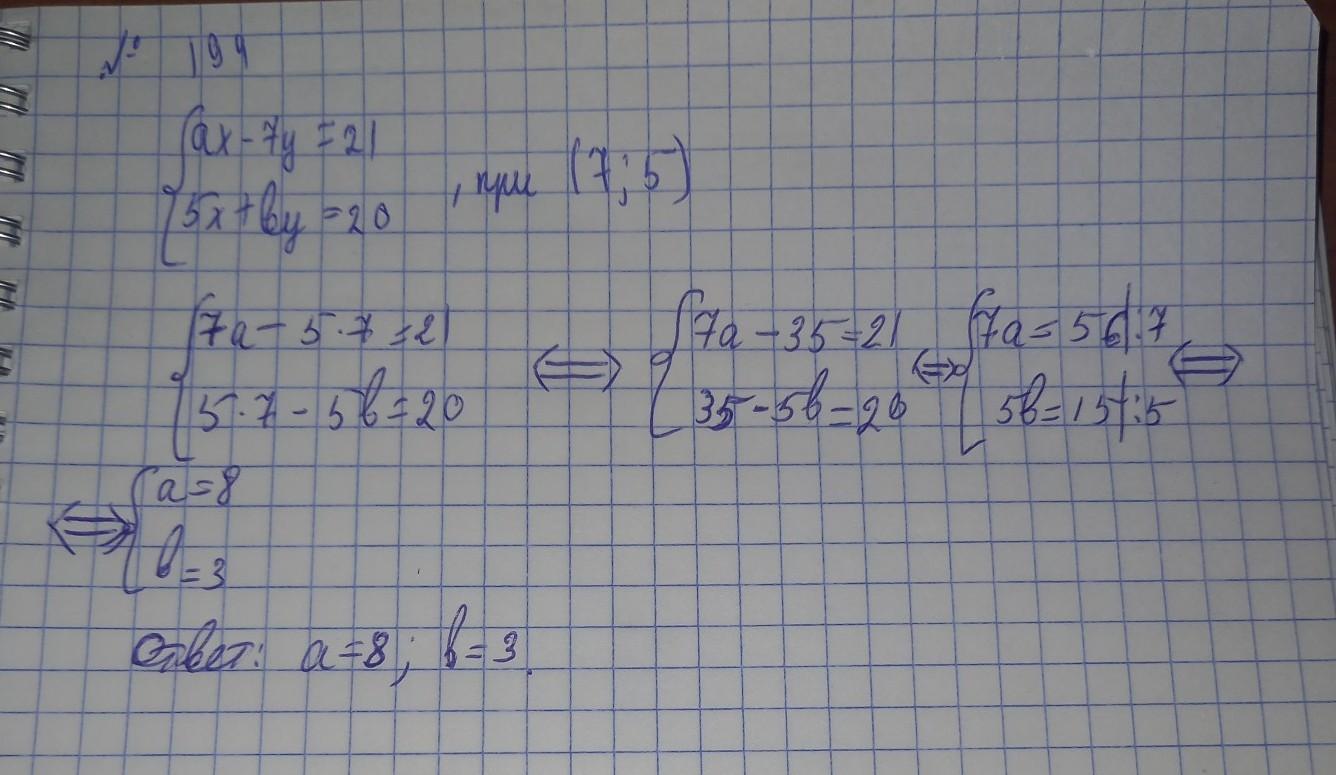 № 194
{ax - 7y = 21
{5x + by = 20 , при (7; 5)
{7a - 5·7 = 21
{5·7 - 5b = 20 ⟺ {7a - 35 = 21
{35 - 5b = 20 ⟺ {7a = 56 |:7
{5b = 15 |:5 ⟺
⟺ {a = 8
{b = 3
Ответ: a = 8; b = 3.